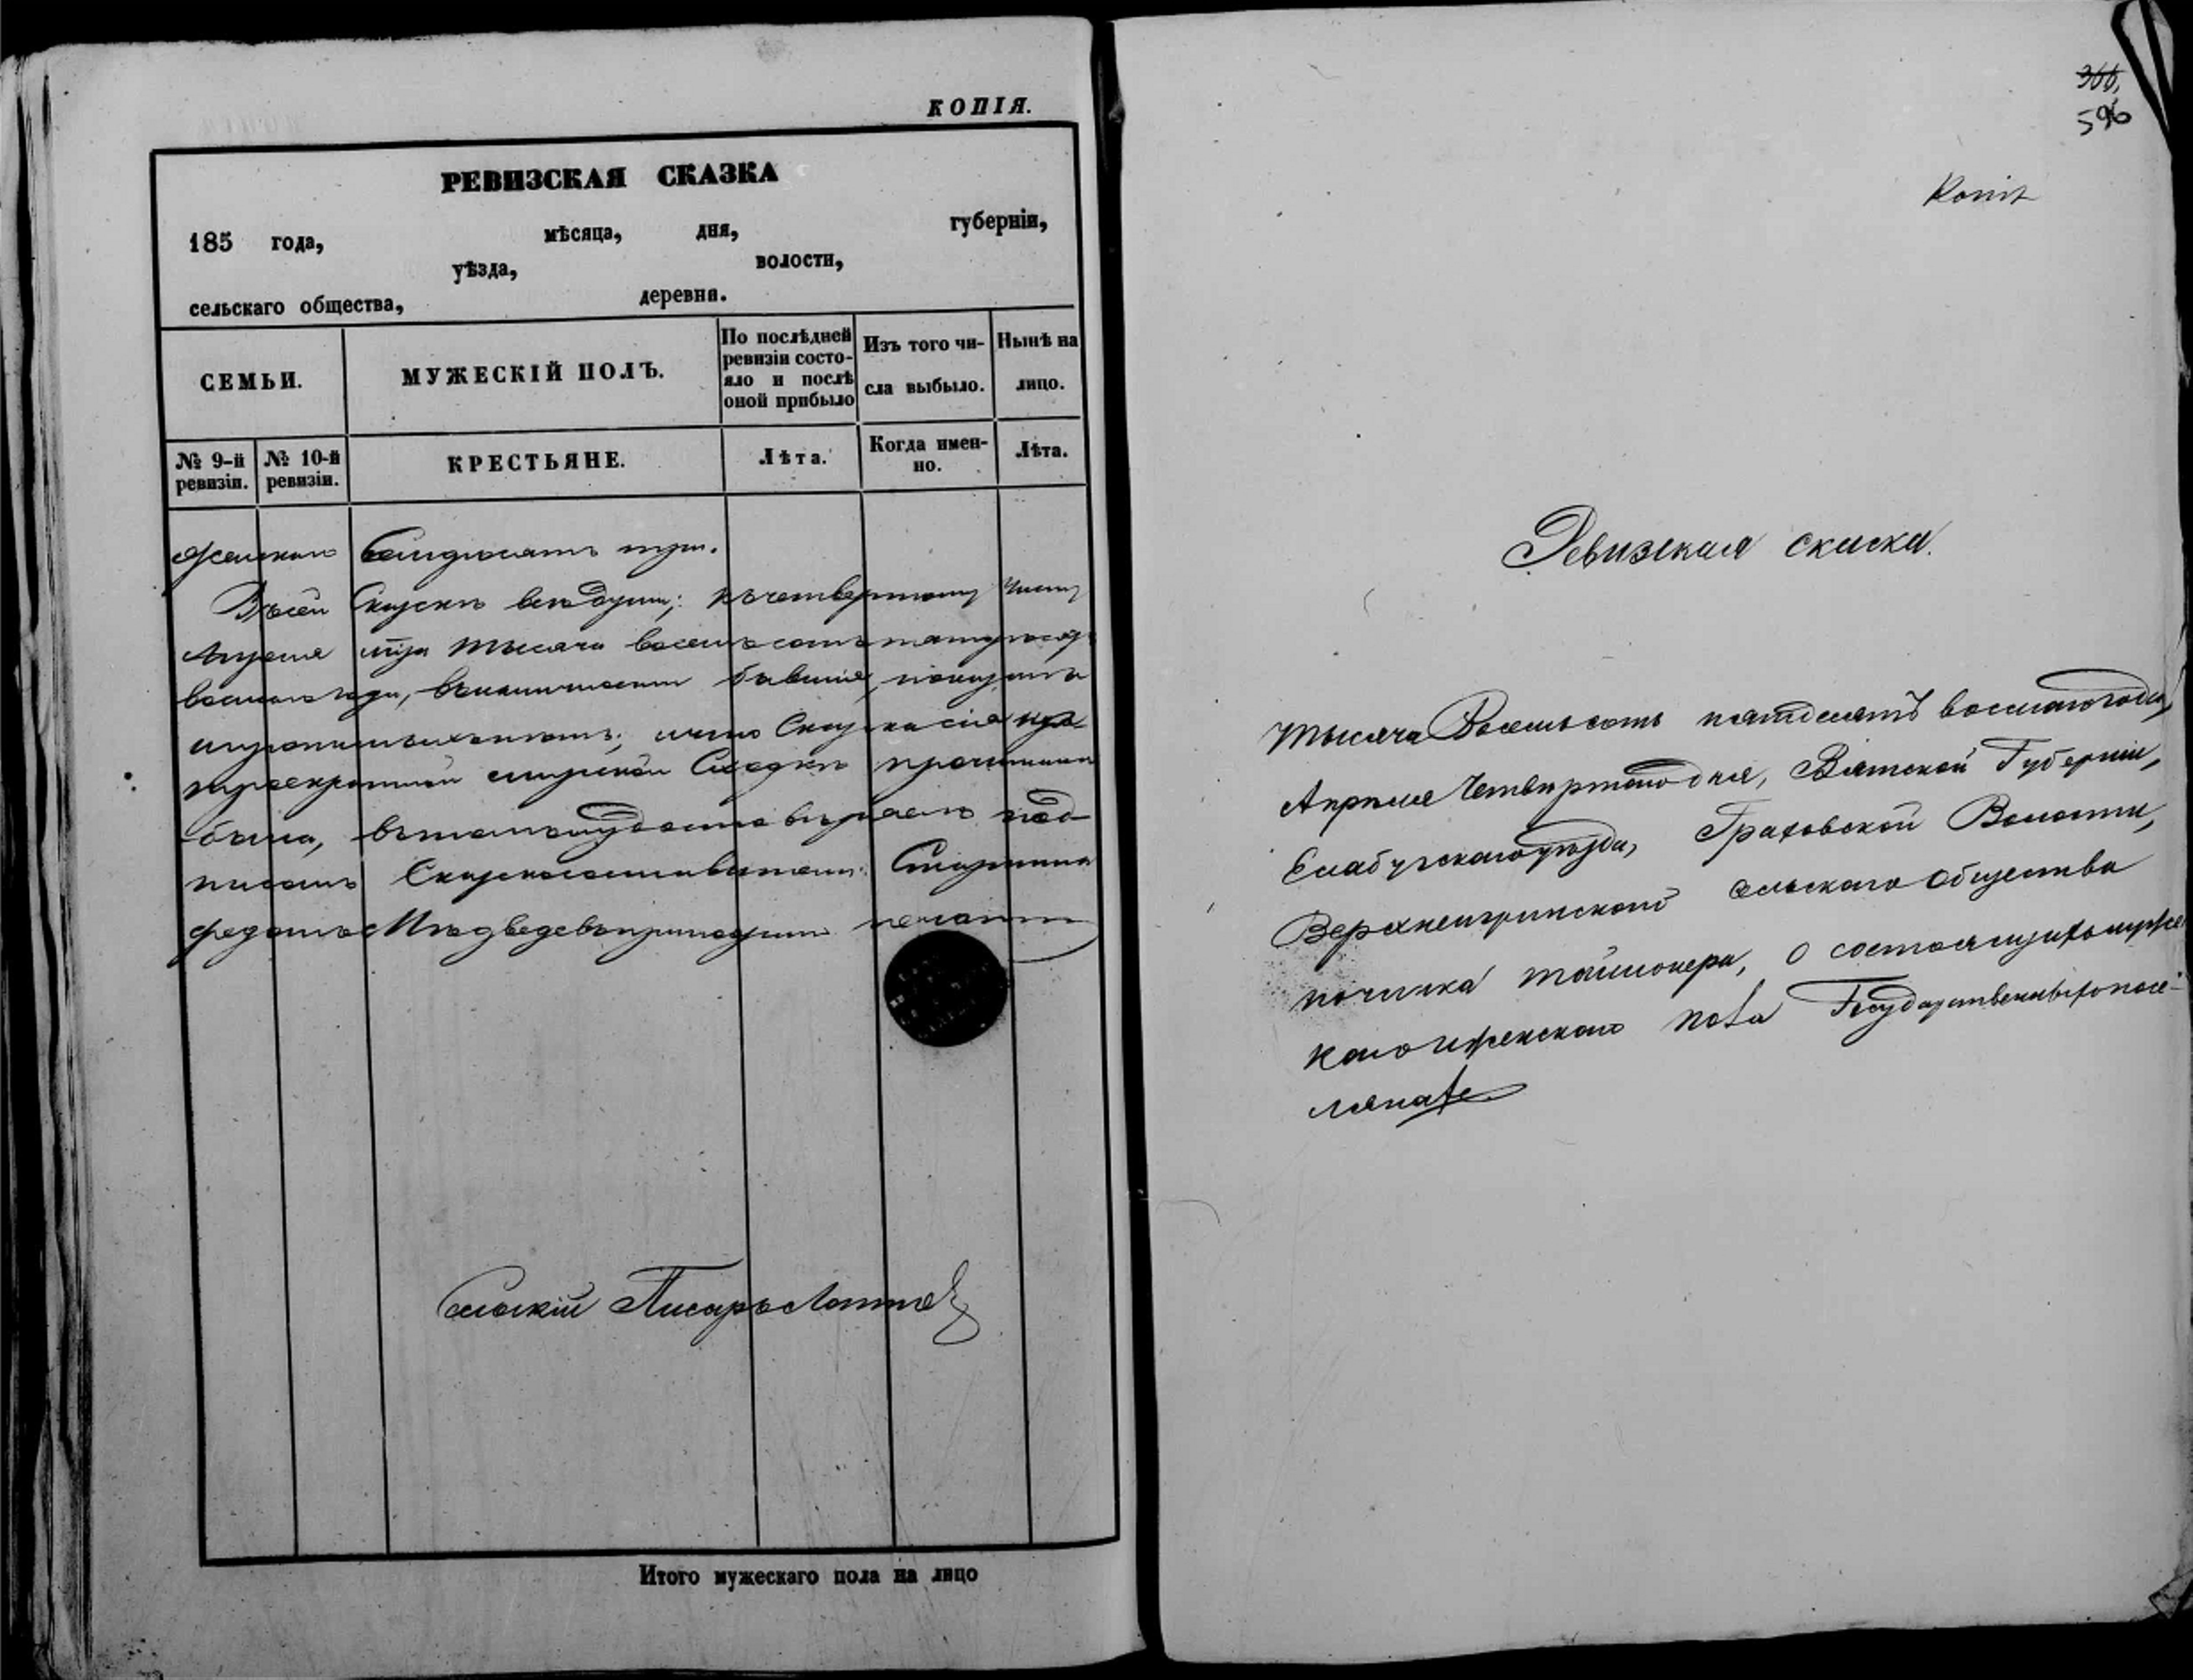 КОПІЯ.
РЕВИЗСКАЯ СКАЗКА
185 года, мѣсяца, дня, губерніи,
уѣзда, волости,
сельскаго общества, деревня.
СЕМЬИ.
МУЖЕСКІЙ ПОЛЪ.
По послѣдней
ревизіи состо-
яло и послѣ
оной прибыло
Изъ того чи-
сла выбыло.
Нынѣ на
лицо.
№ 9-й
ревизіи.
№ 10-й
ревизіи.
КРЕСТЬЯНЕ.
Лѣта.
Когда имен-
но.
Лѣта.
женскаго семдесятъ три.
Въ сей Скаскѣ всѣ души; къ четвертому числу
Апреля тысяча восемьсотъ пятдесятъ
восмаго года, въ наличности бывшіе, показаны
и что Скаска сія на
мирской Сходкѣ прочитана
была, въ томъ удостовѣряемъ под-
писомъ Скаскосоставители: Старшина
Федотъ Медведевъ приложилъ печать
Сельскій Писарь
Итого мужескаго пола на лицо
366,
596
Копія
Ревизская скаска.
Тысяча Восемьсотъ пятдесятъ восмаго года,
Апреля Четвертого дня, Вятской Губерніи,
Елабугскаго уѣзда, Граховской Волости,
Верхнеигринскаго сельскаго общества
починка о состоящихъ мужес
каго и женскаго пола Государственныхъ посе-
лянахъ.